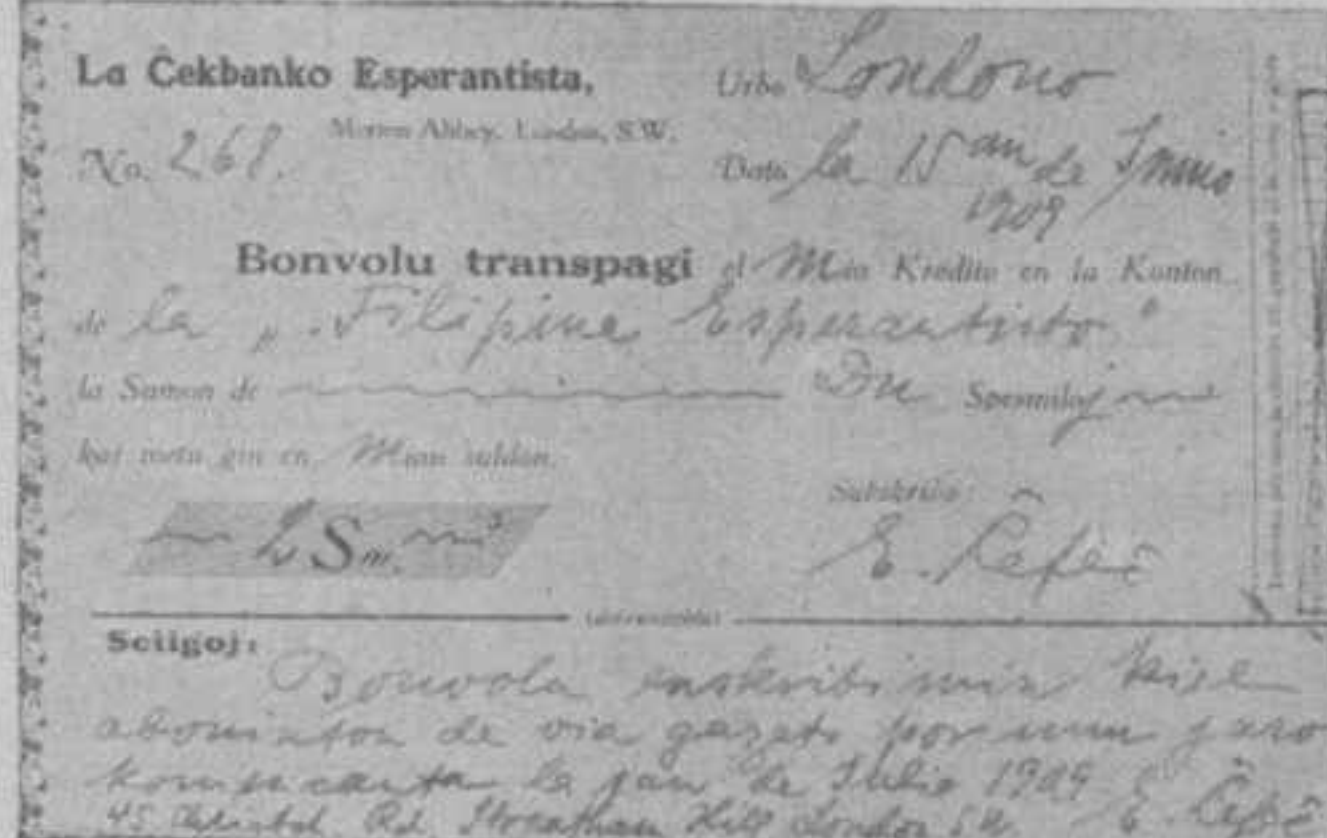 La Ĉekbanko Esperantista,
Merton Abbey, London, S.W.
No. 268.
Urbo Londono
Dato la 15an de Junio
1909
Bonvolu transpagi el Mia Kredito en la Konton
de la "Filipina Esperantisto"
la Sumon de Du Spesmiloj
kaj metu ĝin en Mian saldon.
2 Sm.
Subskribo:
E. Ĉefeĉ
Sciigoj:
Bonvolu enskribi min kiel
abonanton de via gazeto por unu jaro
komencanta la 1an de Julio 1909
45 Rd. Streatham Hill London SW. E. Ĉefeĉ